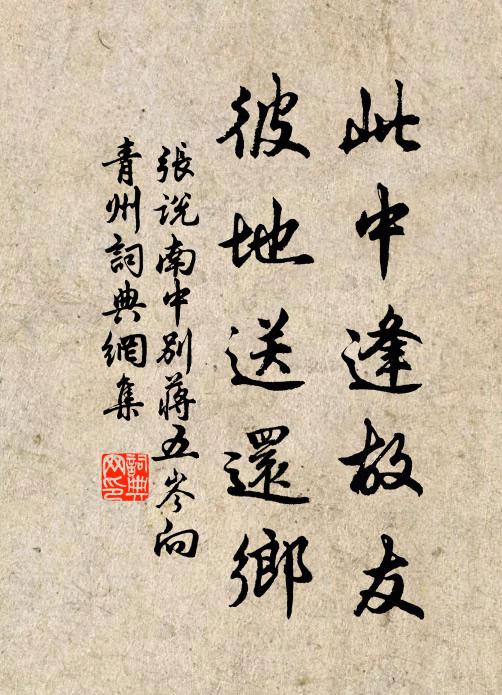 此中逢故友
彼地送還鄉
張説南中別蔣五岑向
青州詞典網集
詞典
网印